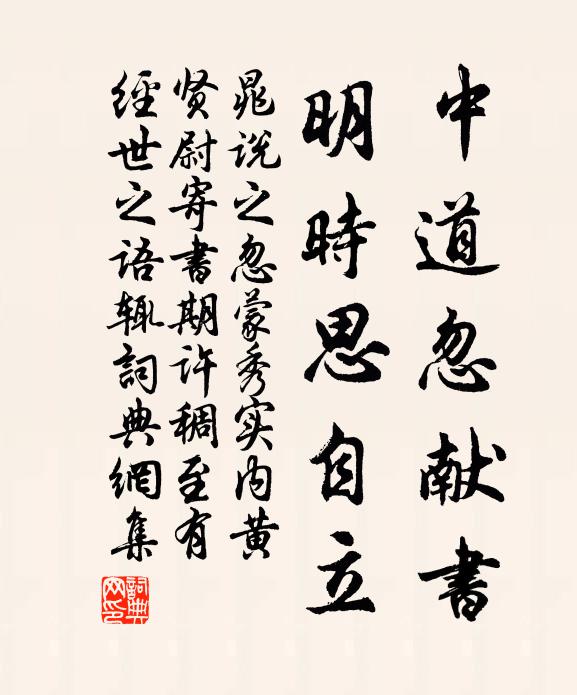 中道忽献書
明時思自立
晁说之忽蒙秀实内黄
贤尉寄書期许稠至有
經世之语辄詞典網集
詞典网印